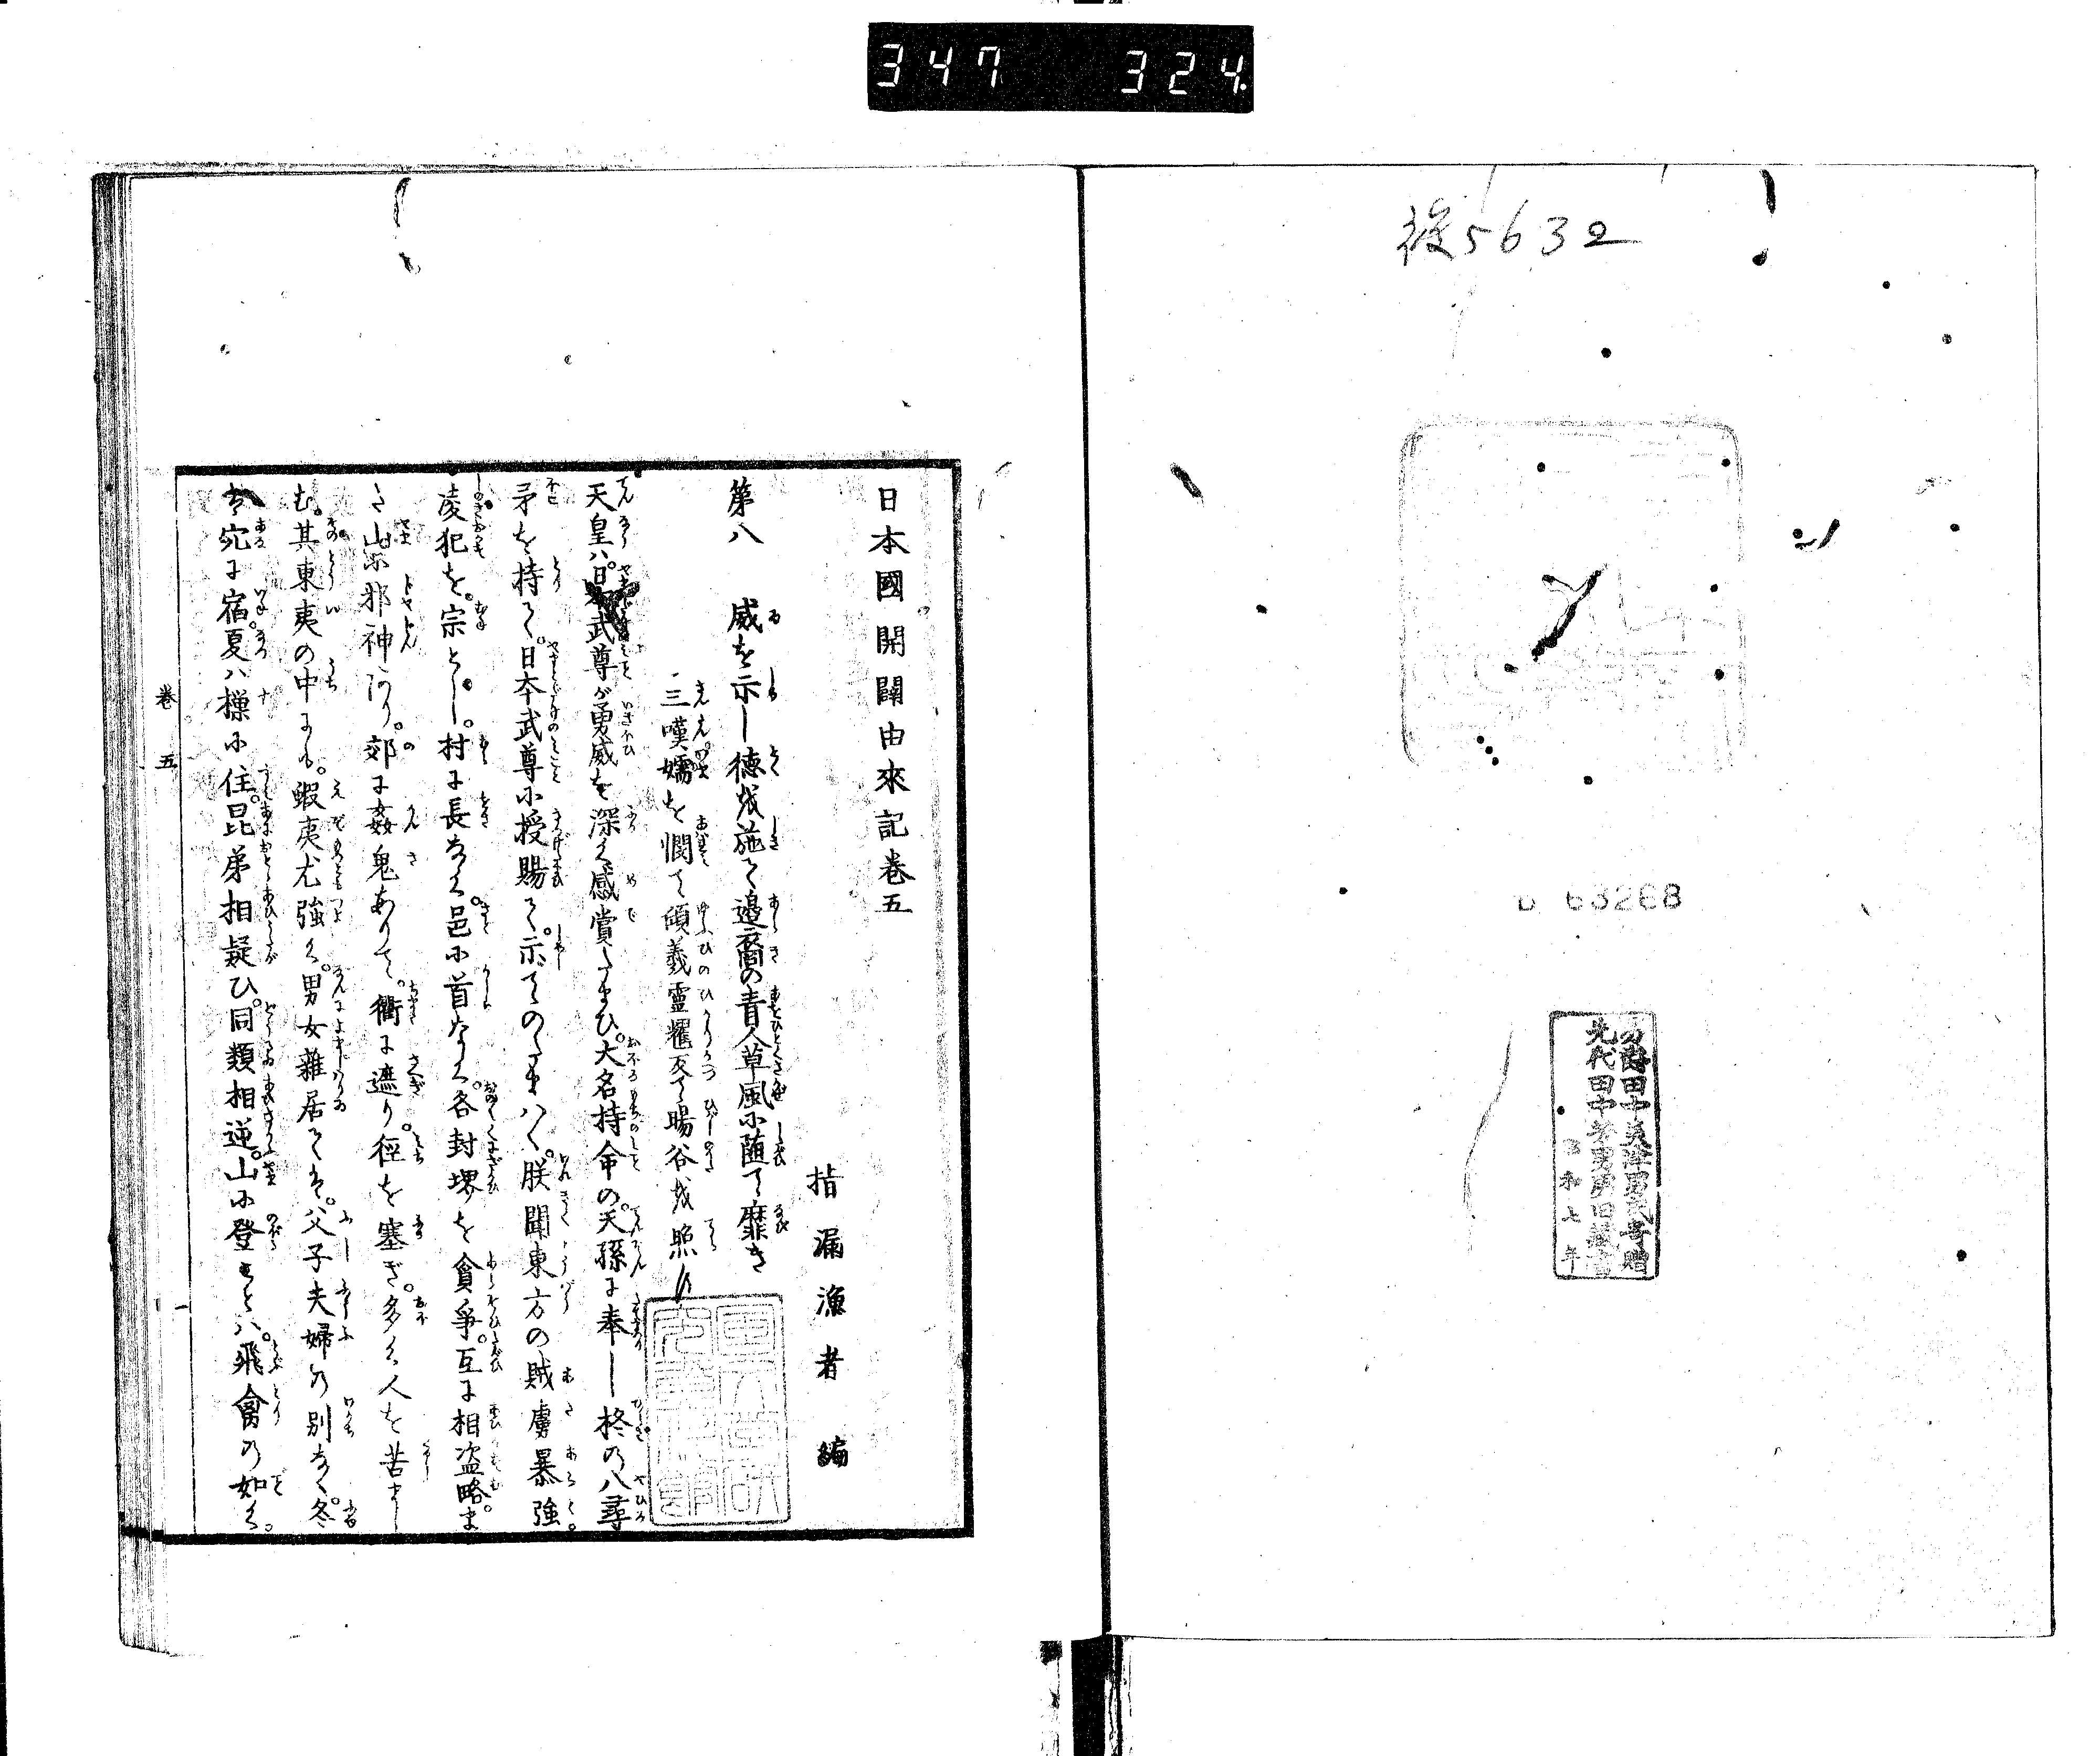 347 324
後5632
D 63268
男爵田中美津男氏寄贈
先代田中芳男男爵旧蔵書
昭和七年
日本國開闢由來記卷五
指漏漁者 編
第八 威を示し徳を施て邉裔の青人草風に随て靡き
三嘆嬬を憫て傾義靈耀反て暘谷を照す
天皇ハ。日本武尊が勇威を深く感賞したまひ。大名持命の。天孫に奉し柊の八尋
矛を持て。日本武尊に授賜て。示てのたまハく。朕聞東方の賊虜暴強
凌犯を。宗とし。村に長なく。邑に首なく。各封堺を貪爭。互に相盗略。ま
た山に邪神あり。郊に姦鬼ありて。衢に遮り。徑を塞ぎ。多く人を苦まし
む。其東夷の中にも。蝦夷尤強く。男女雜居てをり。父子夫婦の別なく。冬
は穴に宿。夏ハ樔に住。昆弟相疑ひ。同類相逆。山に登ること ハ。飛禽の如く。
卷五
一